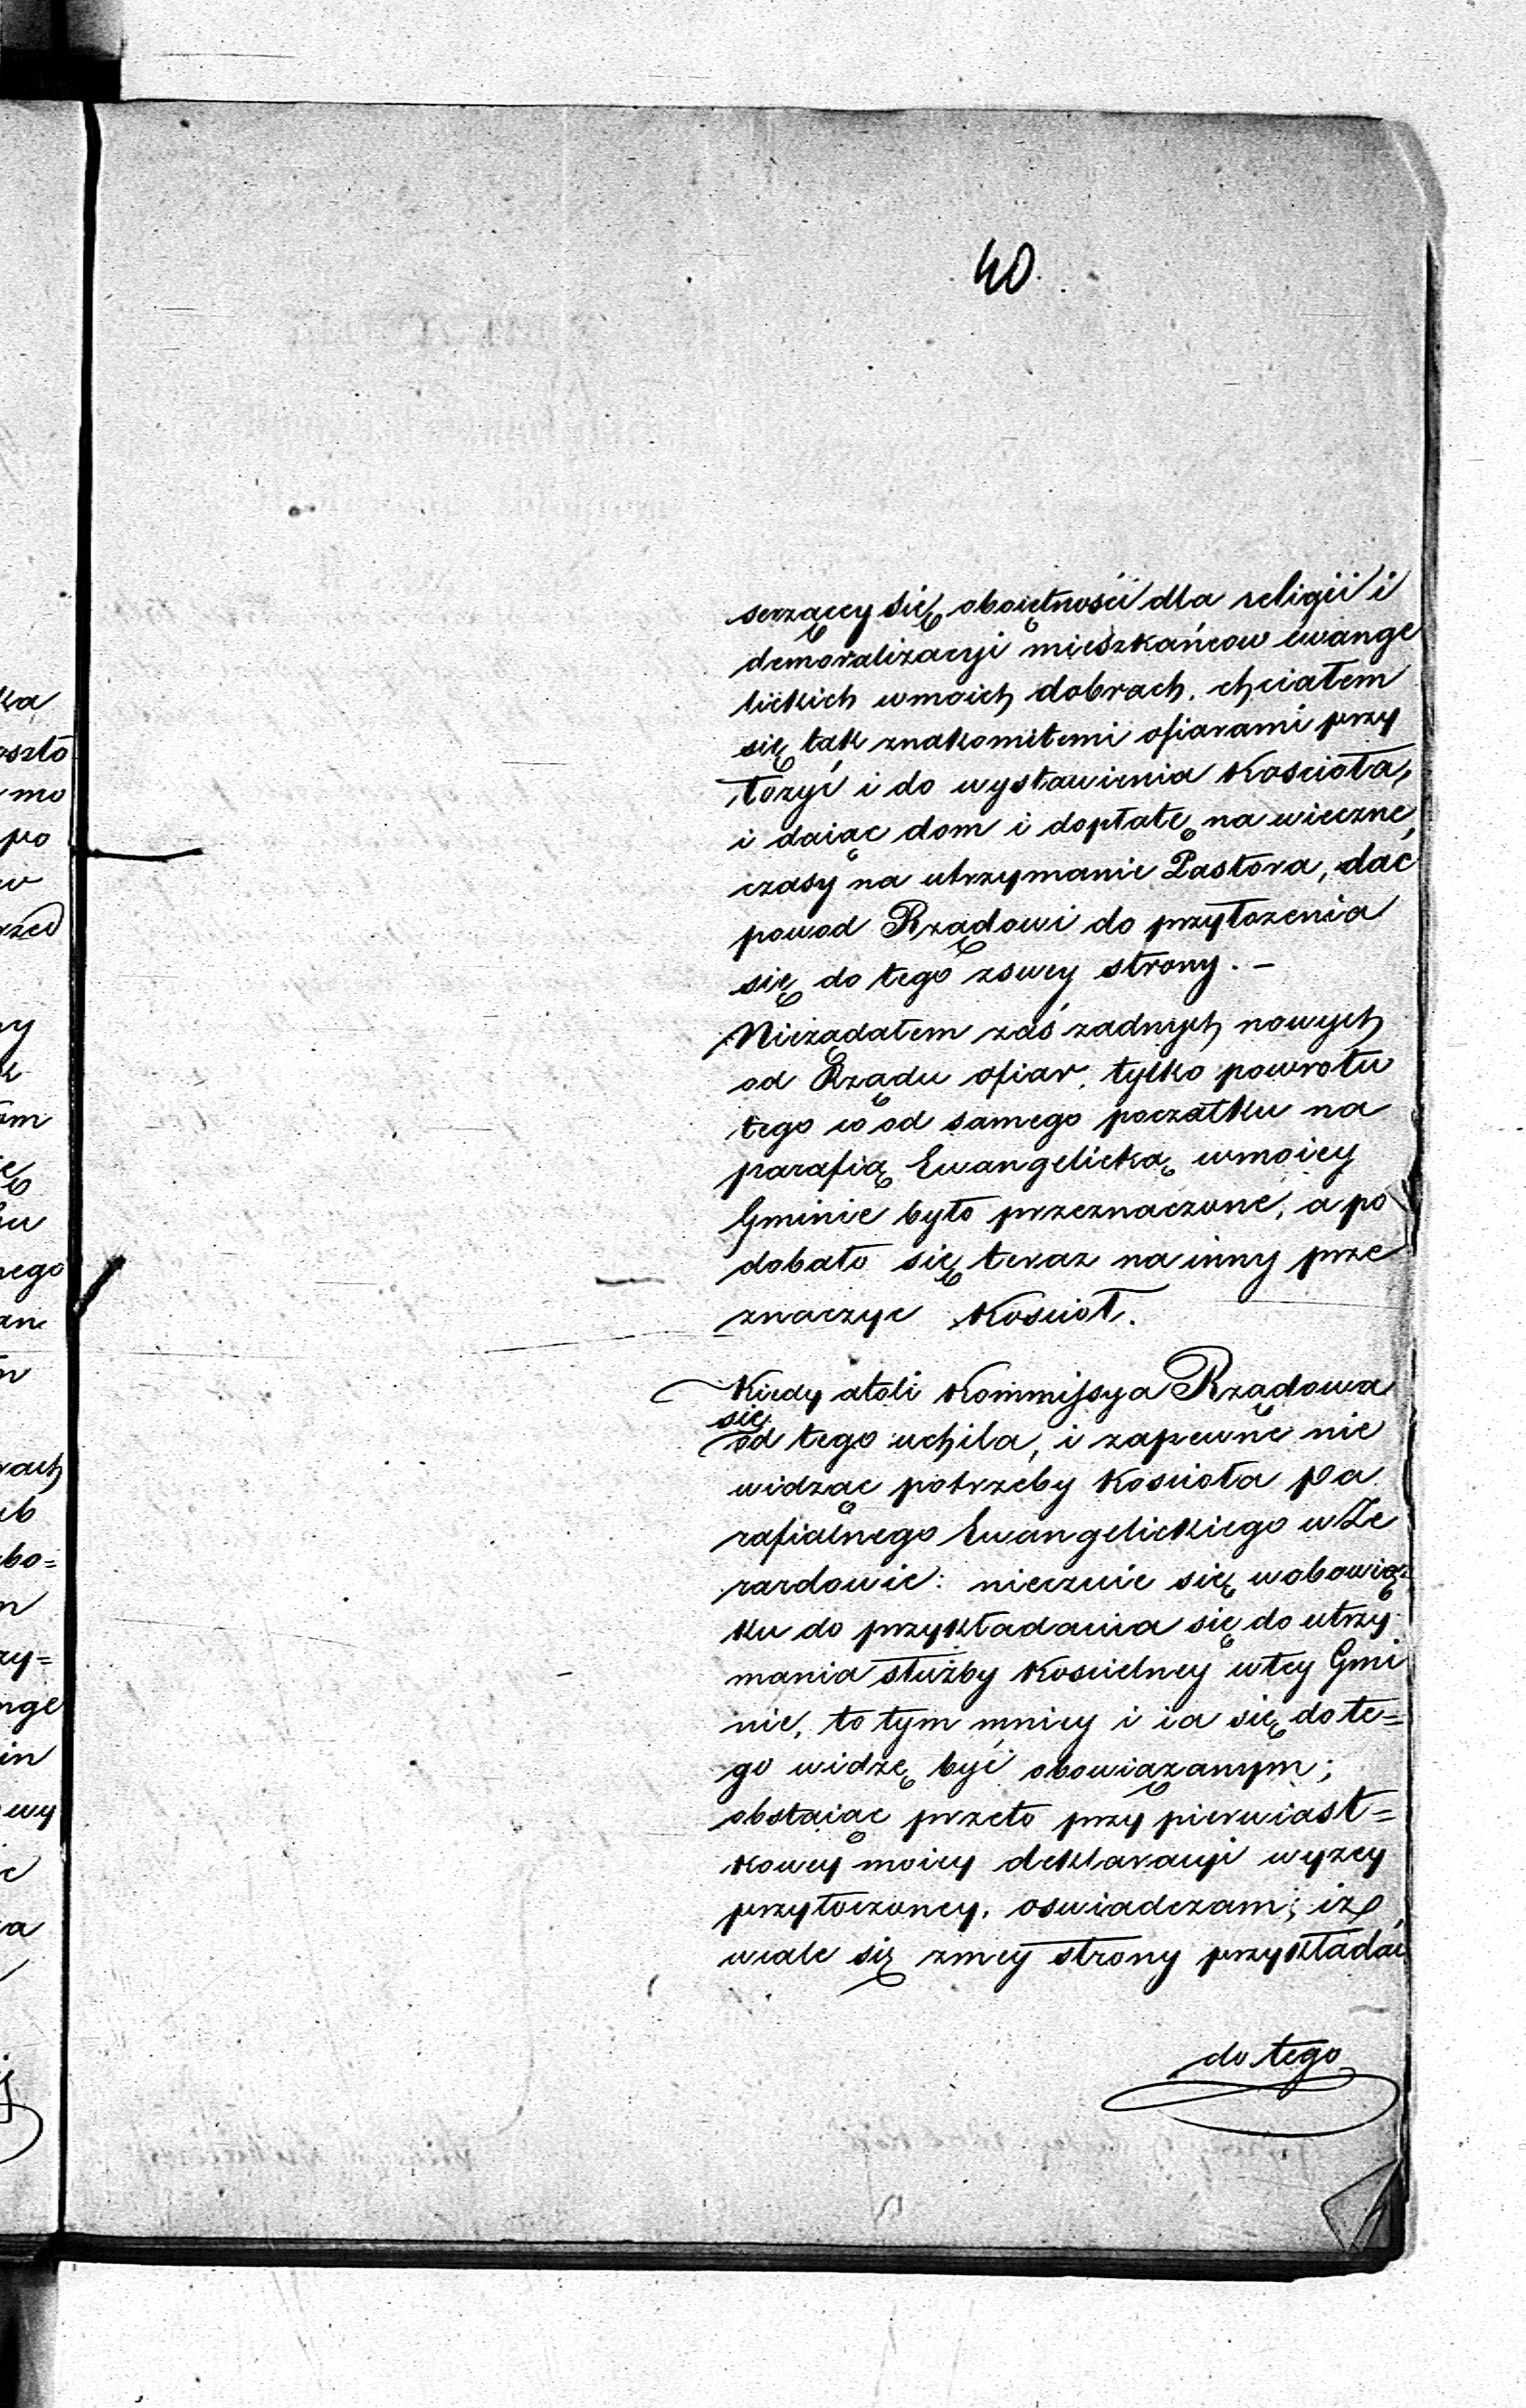 40.
serzącey się oboiętności dla religii i
demoralizacyi mieszkańcow ewange
lickich wmoich dobrach. chciałem
się tak znakomitemi ofiarami przy
łożyć i do wystawienia Kościoła,
i daiąc dom i dopłatę na wieczne
czasy na utrzymanie Pastora, dać
powod Rządowi do przyłożenia
się do tego zswey strony. –
Nieżądałem zaś żadnych nowych
od Rządu ofiar, tylko powrotu
tego co od samego początku na
parafią Ewangelicką wmoiey
Gminie było przeznaczone, a po
dobało się teraz na inny prze
znaczyć Kościoł.
Kiedy atoli Kommissya Rządowa
się
od tego uchila, i zapewne nie
widząc potrzeby Kościoła pa
rafialnego Ewangelickiego w Że
rardowie: nieczuie się wobowiąz=
ku do przykładania się do utrzy
mania służby Kościelney wtey Gmi
nie, to tym mniey i ia się do te=
go widzę być obowiązanym;
obstaiąc przeto przy pierwiast=
kowey moiey deklaracyi wyżey
przytoczoney, oswiadczam; iż
wcale się zmey strony przykładać
do tego
ka
oszto
mo
po
w
rzed
am
nego
rach
ub
ubo=
ry=
nge
in
wy